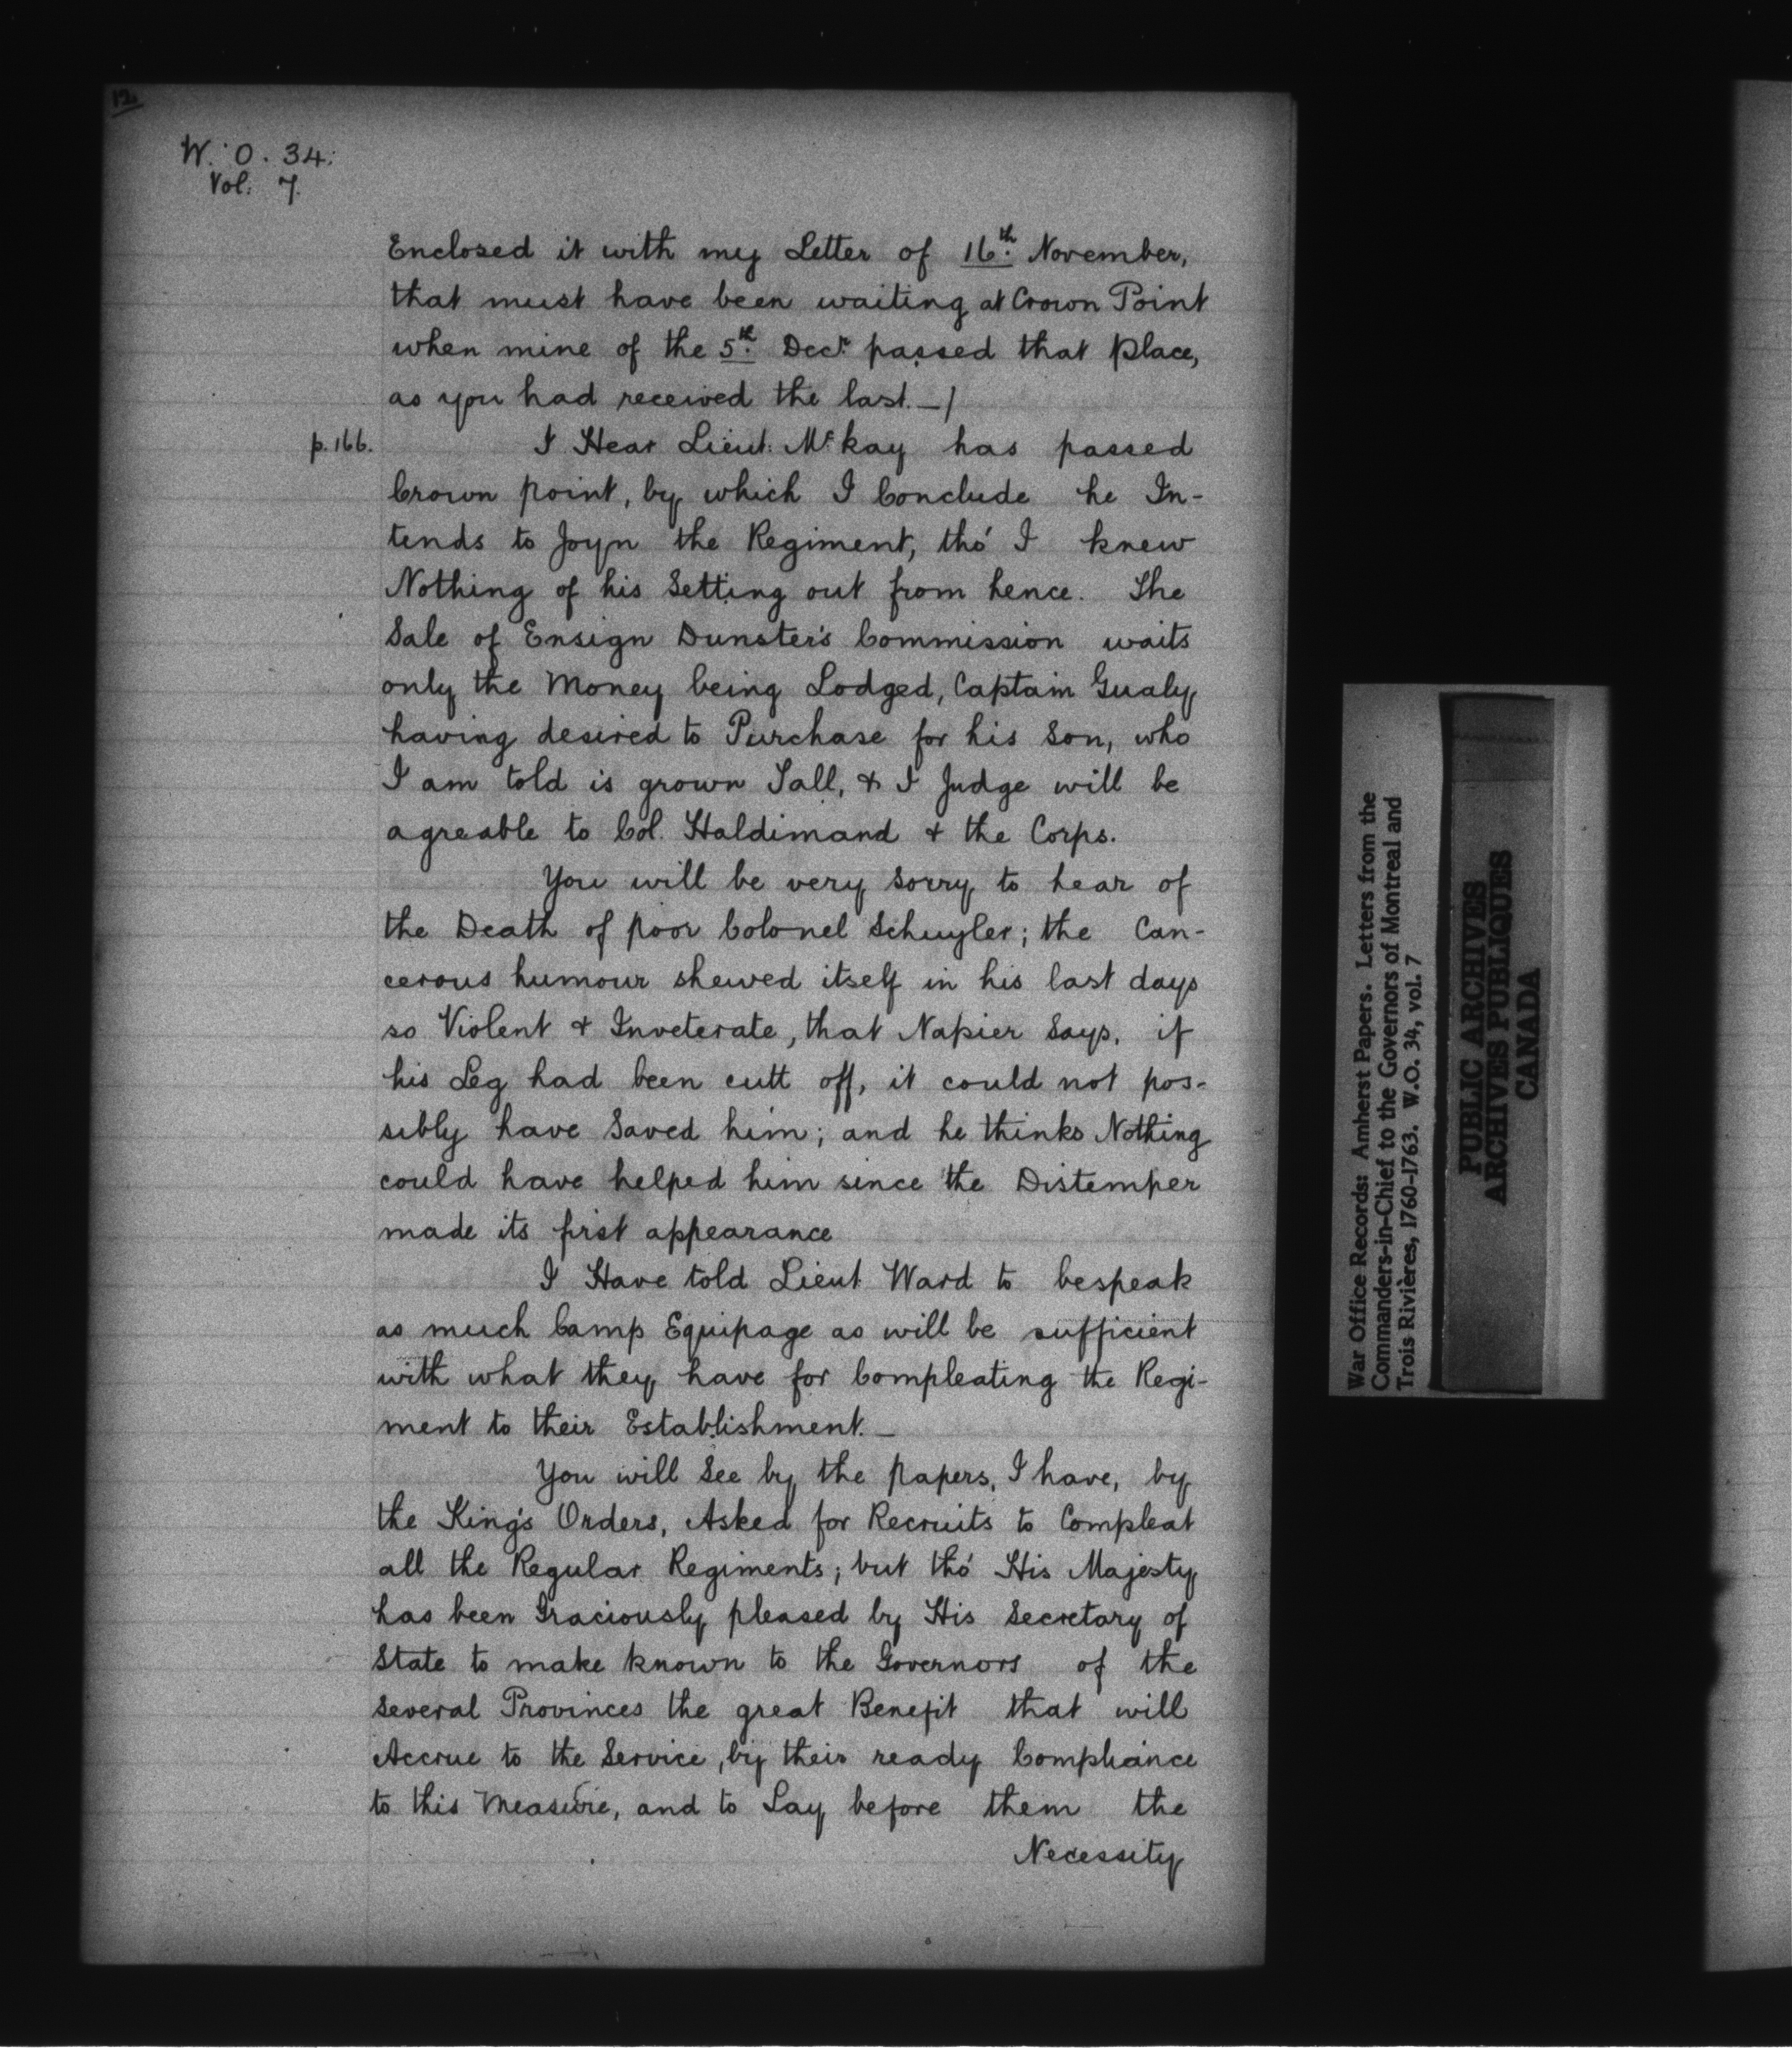 12.
W. O. 34.
Vol. 7.
Enclosed it with my Letter of 16th November,
that must have been waiting at Crown Point
when mine of the 5th Decr. passed that place,
as you had received the last. —/
p. 166.
I Hear Lieut. Mc kay has passed
Crown point, by which I Conclude he In-
tends to Joyn the Regiment, tho' I knew
Nothing of his Setting out from hence. The
Sale of Ensign Dunster's Commission waits
only the Money being Lodged, Captain Gualy
having desired to Purchase for his Son, who
I am told is grown Tall, & I Judge will be
agreable to Col. Haldimand & the Corps.
You will be very Sorry to hear of
the Death of poor Colonel Schuyler; the Can-
cerous humour shewed itself in his last days
so Violent & Inveterate, that Napier Says, if
his Leg had been cutt off, it could not pos-
sibly have Saved him; and he thinks Nothing
could have helped him since the Distemper
made its first appearance
I Have told Lieut Ward to bespeak
as much Camp Equipage as will be sufficient
with what they have for Compleating the Regi-
ment to their Establishment. —
You will See by the papers, I have, by
the King's Orders, Asked for Recruits to Compleat
all the Regular Regiments; but tho' His Majesty
has been Graciously pleased by His Secretary of
State to make known to the Governors of the
Several Provinces the great Benefit that will
Accrue to the Service, by their ready Compliance
to this Measure, and to Lay before them the
Necessity
War Office Records: Amherst Papers. Letters from the
Commanders-in-Chief to the Governors of Montreal and
Trois Rivières, 1760-1763. W.O. 34, vol. 7
PUBLIC ARCHIVES
ARCHIVES PUBLIQUES
CANADA